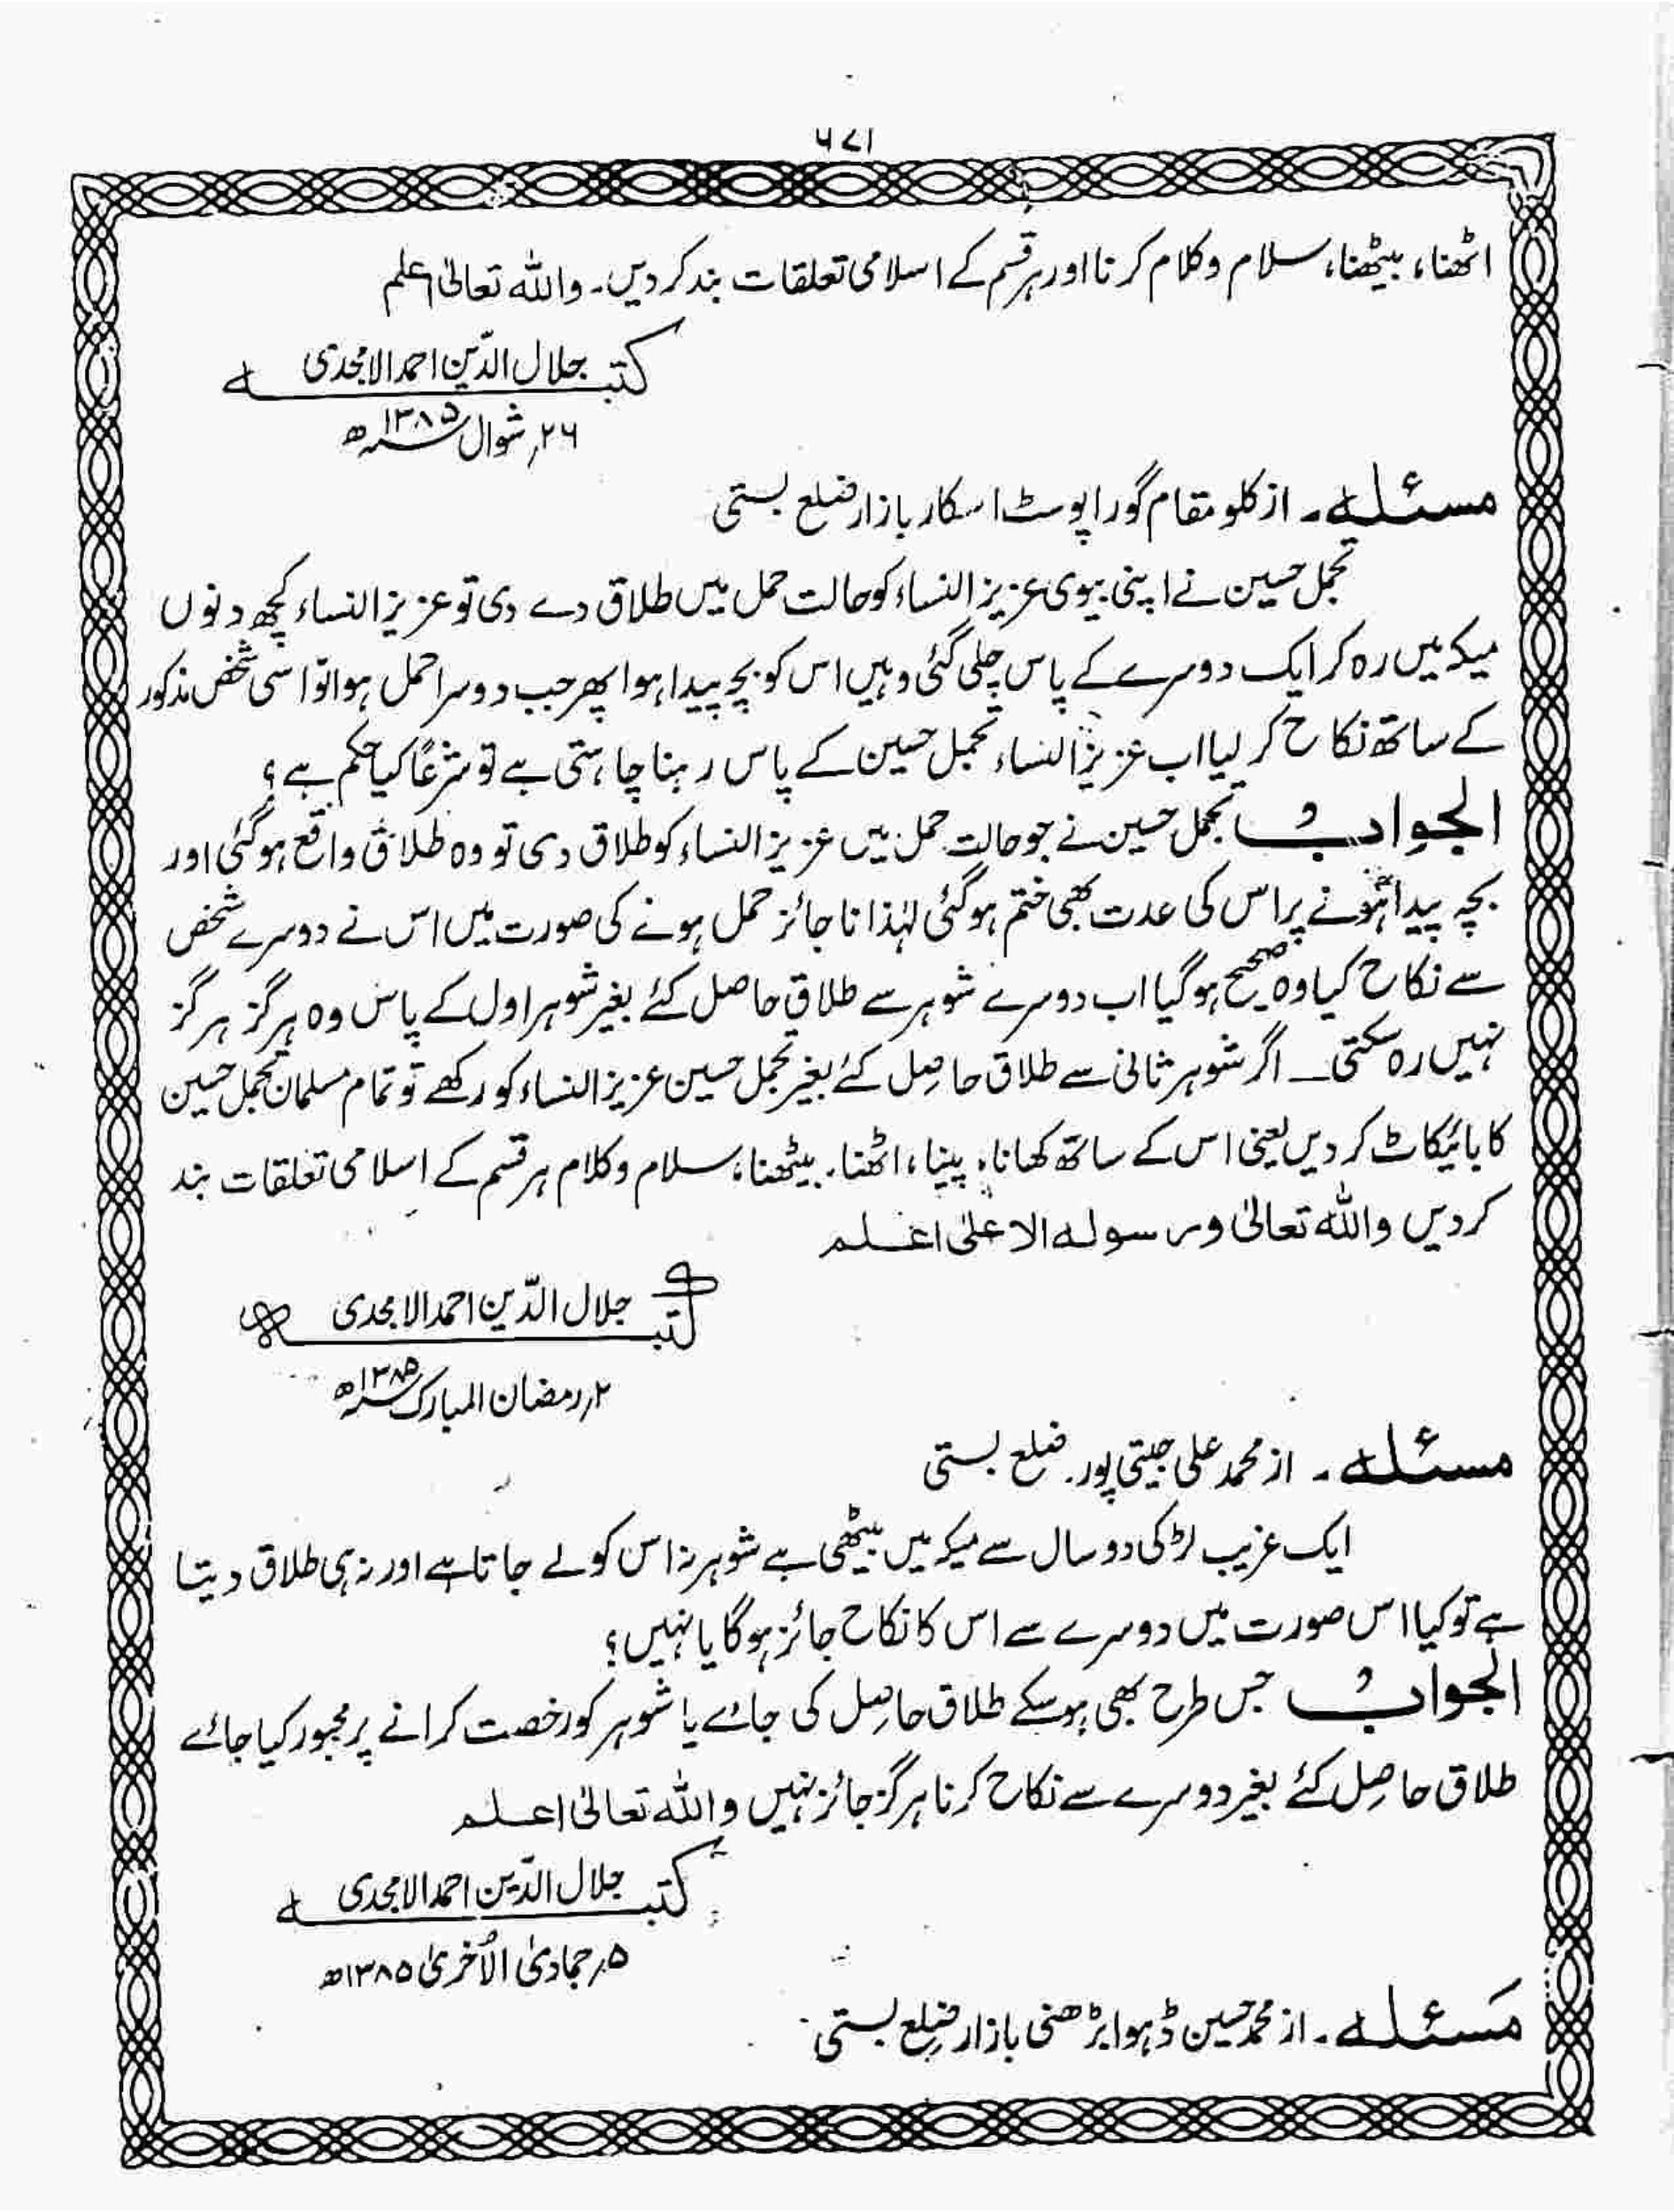 ۶۷۱
اٹھنا، بیٹھنا، سلام و کلام کرنا اور ہر قسم کے اسلامی تعلقات بند کر دیں۔ واللہ تعالیٰ اعلم
کتبہ جلال الدّین احمد الامجدی
۲۶؍ شوال ۱۳۸۵ھ
مسئلہ۔ از کلو مقام گورا پوسٹ اسکار بازار ضلع بستی
تجمل حسین نے اپنی بیوی عزیز النساء کو حالت حمل میں طلاق دے دی تو عزیز النساء کچھ دنوں
میکہ میں رہ کر ایک دوسرے کے پاس چلی گئی وہیں اس کو بچہ پیدا ہوا پھر جب دوسرا حمل ہوا تو اسی شخص مذکور
کے ساتھ نکاح کر لیا اب عزیز النساء تجمل حسین کے پاس رہنا چاہتی ہے تو شرعًا کیا حکم ہے؟
الجواب تجمل حسین نے جو حالت حمل میں عزیز النساء کو طلاق دی تو وہ طلاق واقع ہو گئی اور
بچہ پیدا ہونے پر اس کی عدت بھی ختم ہو گئی لہٰذا ناجائز حمل ہونے کی صورت میں اس نے دوسرے شخص
سے نکاح کیا وہ صحیح ہو گیا اب دوسرے شوہر سے طلاق حاصل کئے بغیر شوہر اول کے پاس وہ ہرگز ہرگز
نہیں رہ سکتی۔ اگر شوہر ثانی سے طلاق حاصل کئے بغیر تجمل حسین عزیز النساء کو رکھے تو تمام مسلمان تجمل حسین
کا بائیکاٹ کر دیں یعنی اس کے ساتھ کھانا، پینا، اٹھنا، بیٹھنا، سلام و کلام ہر قسم کے اسلامی تعلقات بند
کر دیں واللہ تعالیٰ ورسولہ الاعلیٰ اعلم
کتبہ جلال الدّین احمد الامجدی
۲؍ رمضان المبارک ۱۳۸۵ھ
مسئلہ۔ از محمد علی جیتی پور۔ ضلع بستی
ایک غریب لڑکی دو سال سے میکہ میں بیٹھی ہے شوہر نہ اس کو لے جاتا ہے اور نہ ہی طلاق دیتا
ہے تو کیا اس صورت میں دوسرے سے اس کا نکاح جائز ہوگا یا نہیں؟
الجواب جس طرح بھی ہو سکے طلاق حاصل کی جائے یا شوہر کو رخصت کرانے پر مجبور کیا جائے
طلاق حاصل کئے بغیر دوسرے سے نکاح کرنا ہرگز جائز نہیں واللہ تعالیٰ اعلم
کتبہ جلال الدّین احمد الامجدی
۵؍ جمادی الاُخریٰ ۱۳۸۵ھ
مسئلہ۔ از محمد حسین ڈہوا بڑھنی بازار ضلع بستی